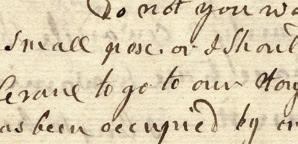 Do not you wa
small pose. or I Shoul
Crane to go to our
as been occupied by